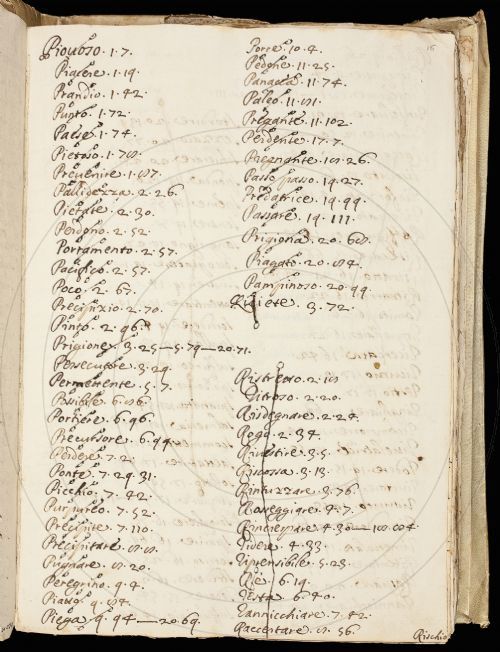 Piouoso. 1. 7.
Piacere. 1. 19.
Prandio. 1. 42.
Punto. 1. 72.
Paese. 1. 74.
Pietoso. 1.
Preuenire. 1.
Pallidezza. 2. 26.
Pietate. 2. 30.
Perdono. 2. 52.
Portamento. 2. 57.
Pacifico. 2. 57.
Poco. 2. 67.
Precipizio. 2. 70.
Pinto. 2. 96.
Prigione. 3. 25 — 5. 79 — 20. 71.
Persecutore. 3. 29.
Permettente. 5. 7.
Possibile. 6.
Portione. 6. 96.
Precursore. 6. 99.
Perdere. 7. 2.
Ponte. 7. 29. 31.
Picchio. 7. 42.
Purpureo. 7. 52.
Precipite. 7. 110.
Precipitare.
Pugnare. 20.
Peregrino. 9. 4.
Piatto. 9.
Piega. 9. 94 — 20. 69.
Porre. 10. 4.
Pedghe. 11. 25.
Panacea. 11. 74.
Paleo. 11.
Pregante. 11. 102.
Perdente. 17. 7.
Pregnante. 26.
Passo passo. 19. 27.
Predatrice. 19. 99.
Passare. 19. 111.
Prigiona. 20.
Piagato. 20.
Pampinoso. 20. 99.
Quiete. 3. 72.
Ristretto. 2.
Ritroso. 2. 20.
Risdegnare. 2. 24.
Rogo. 2. 34.
Riuestire. 3. 5.
Riscossa. 3. 13.
Rintuzzare. 3. 76.
Rosseggiare. 4. 7.
Rincrespare. 4. 30 —
Ridere. 4. 33.
Riprensibile. 5. 23.
Rie. 6. 19.
Resta. 6. 40.
Rannicchiare. 7. 42.
Raccertare. 56.
Rischio